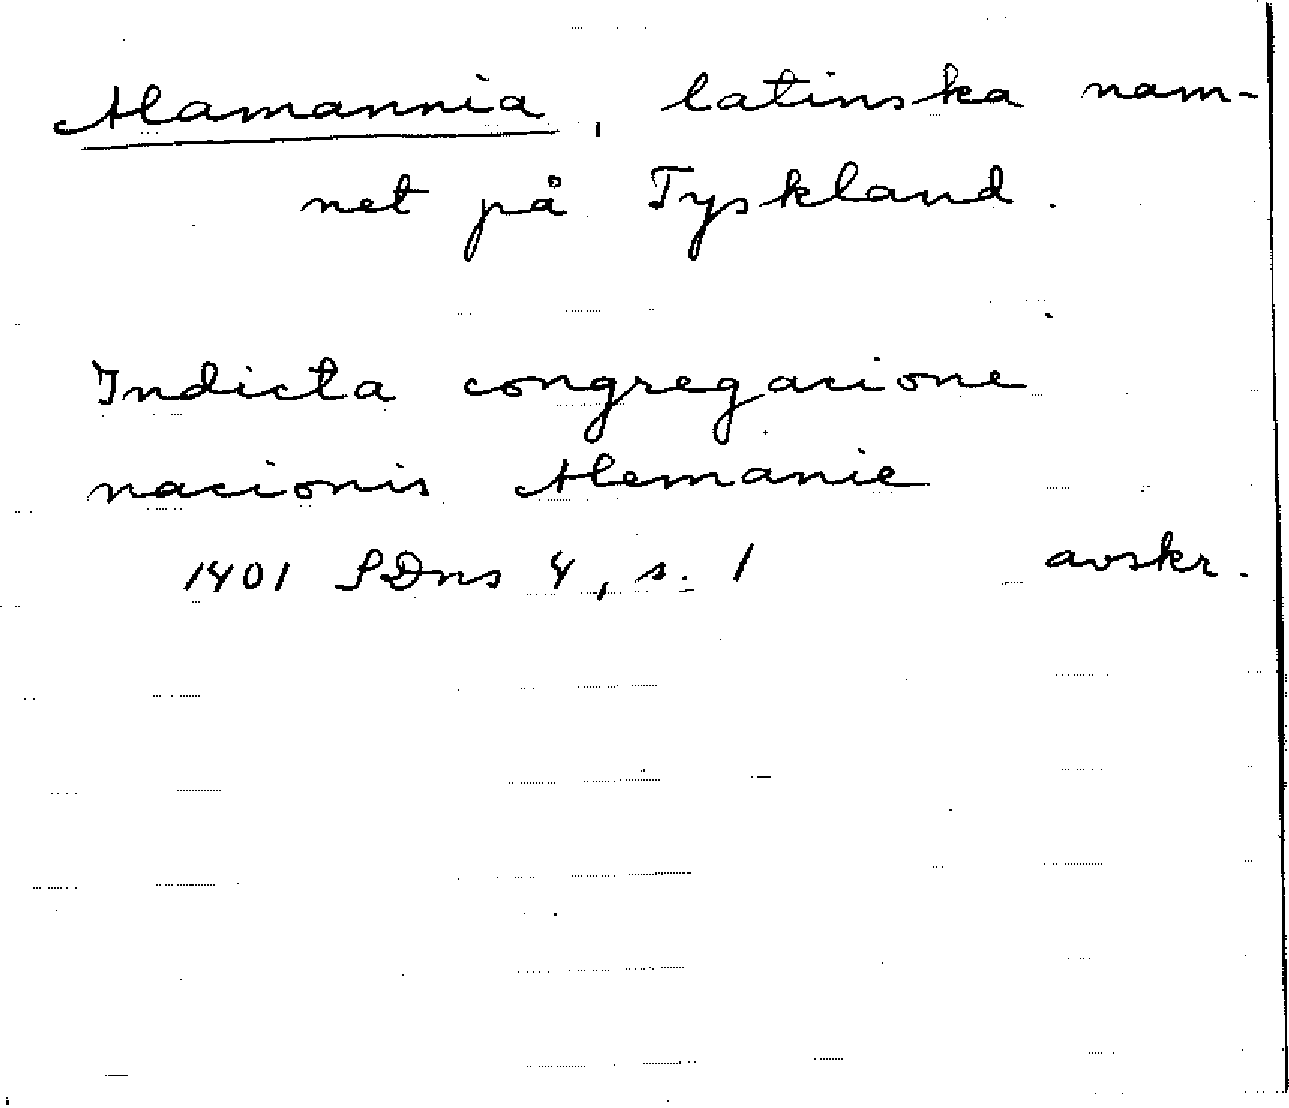 Alamannia, latinska nam-
net på Tyskland.
Indicta congregacione
nacionis Alemanie
1401 SDns 4, s. 1 avskr.